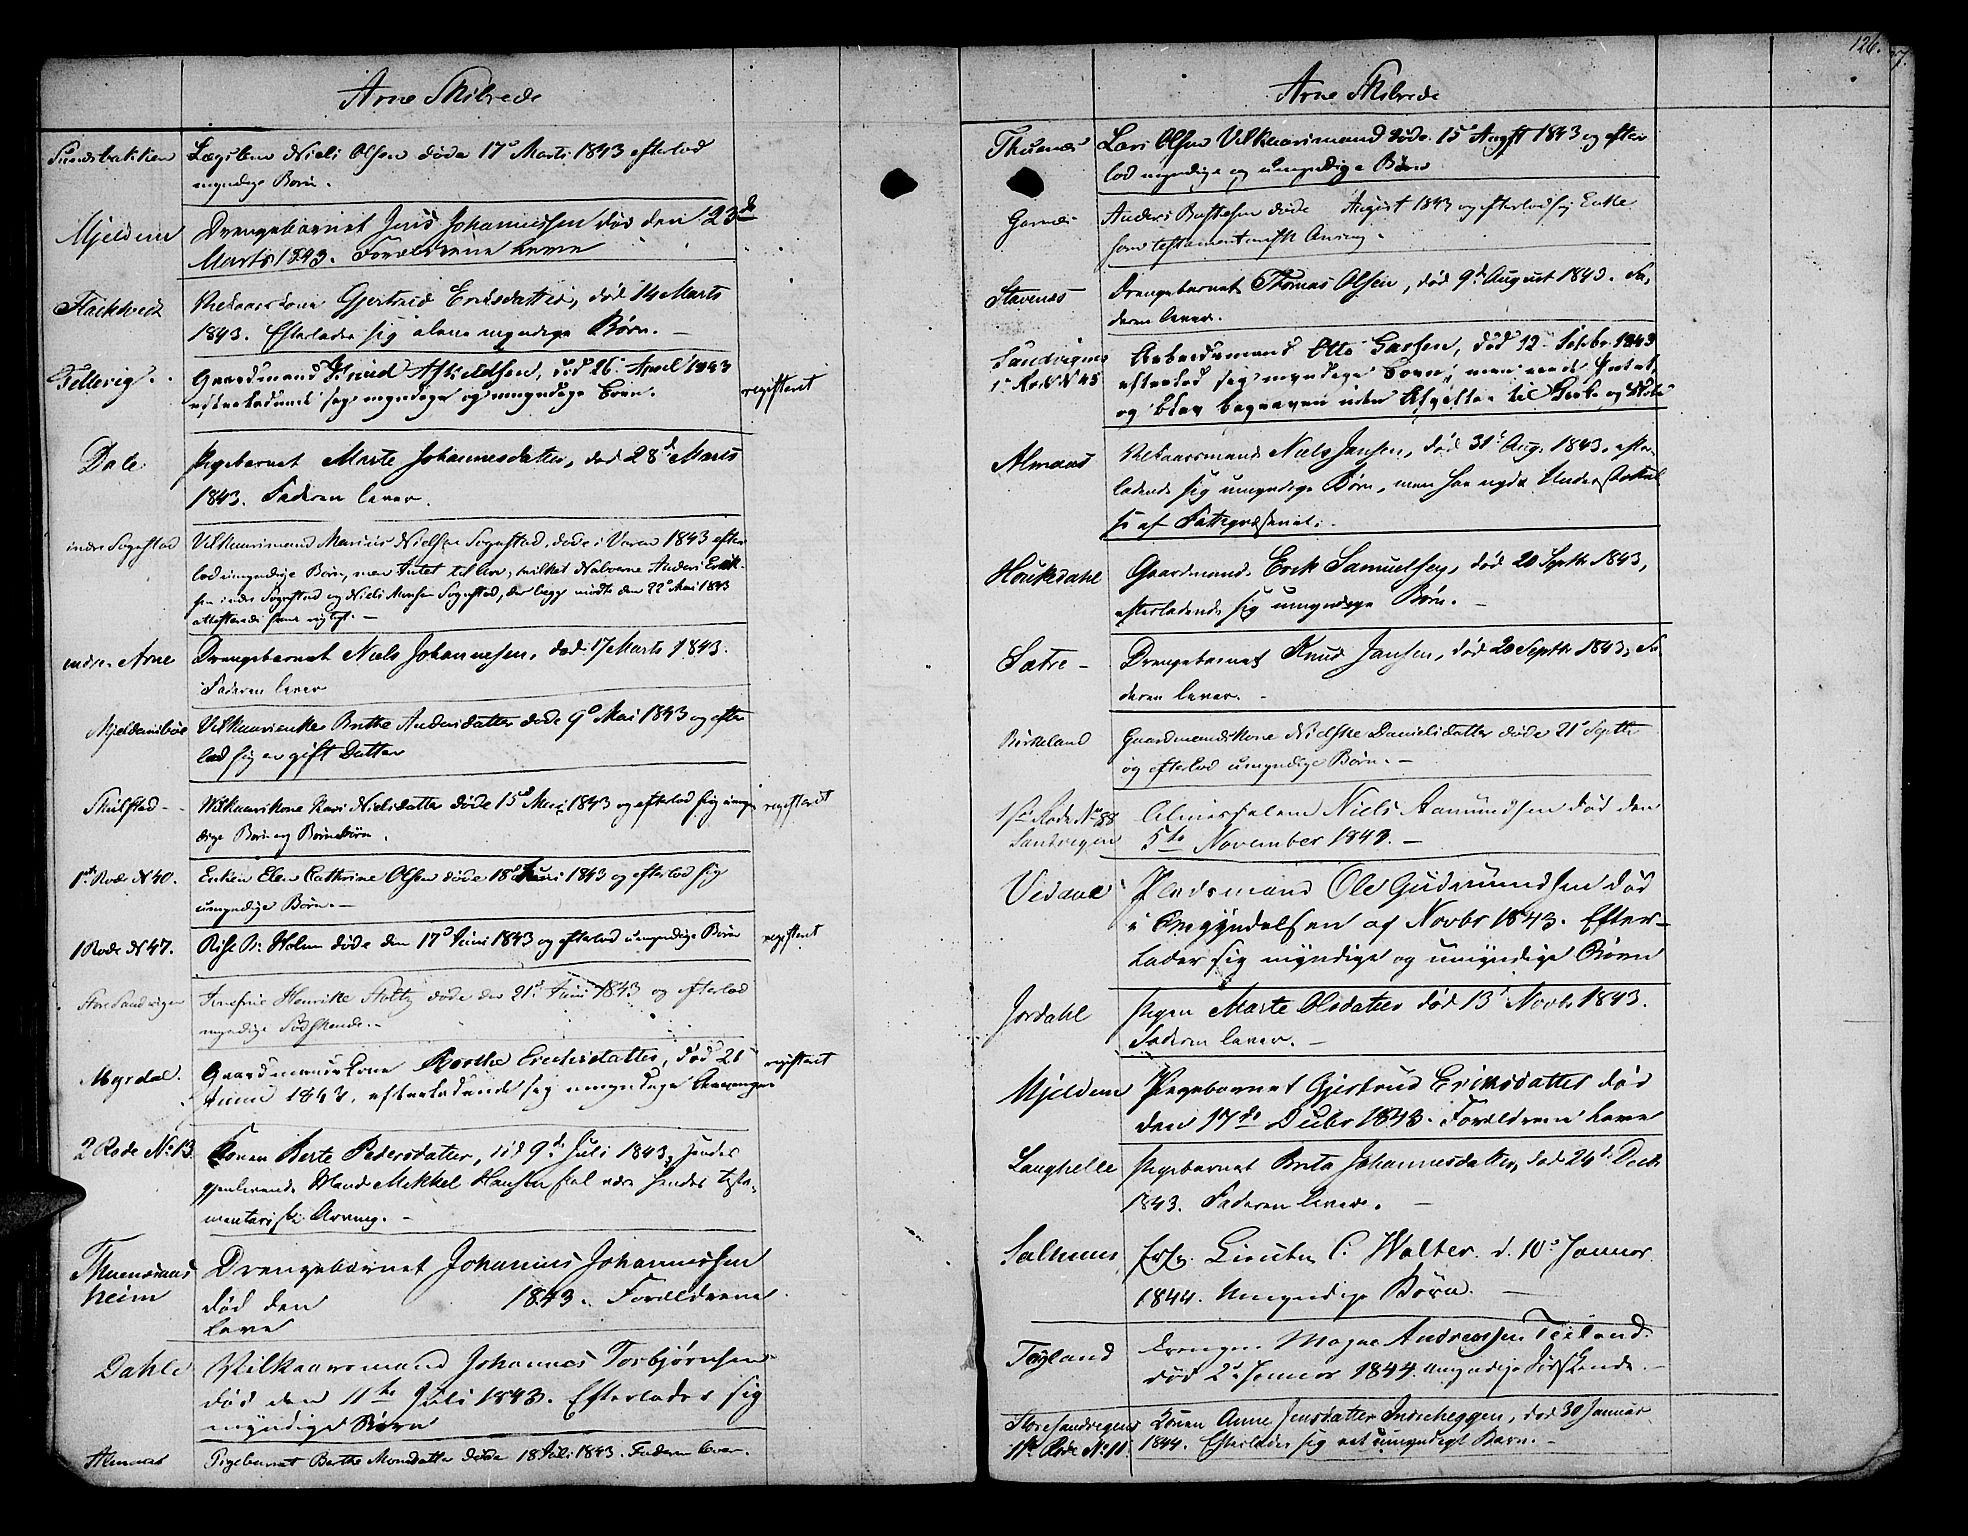 Arne Skibrede
Lægslem Niels Olsen døde 17de Marts 1843 efterlod
myndige Børn.
Mjeldem Drengebarnet Jens Johannessen død den 23de
Marts 1843. Forældrene leve
Flaktveit Vilkaarskone Gjertrud Eriksdatter, død 14 Marts
1843. Efterlader sig alene myndige Børn. —
Gaardmand Knud Askildsen, død 26 April 1843 registeret
efterladende sig myndige og umyndige Børn.
Dale Pigebarnet Marte Johannesdatter, død 28de Marts
1843. Faderen lever.
indre Sognstad Vilkaarsmand Marius Nielsen Sognstad, døde i Vaaren 1843 efter
lod umyndige Børn, men Intet til Arv, hvilket Naboerne Anders Erik-
sen indre Sognstad og Niels Monsen Sognstad, der begge mødte den 22de Mai 1843
attesterede som rigtigt. —
indre Arne Drengebarnet Niels Johannesen, død 17 Marts 1843.
Faderen lever
Mjeldemsbøe Vilkaarsenke Brithe Andersdatter døde 9de Mai 1843 og efter
lod sig en gift Datter
Vilkaarskone Kari Nielsdatter døde 15de Mai 1843 og efterlod sig umyn registeret
dige Børn og Børnebørn.
1ste Rode N 40. Enken Elen Cathrine Olsen døde 18de Juni 1843 og efterlod sig
umyndige Børn. —
1 Rode N 47. Holm døde den 17de Juni 1843 og efterlod umyndige Børn registeret
Store Sandvigen Jomfrue Henrikke Holtz døde den 21de Juni 1843 og efterlod
myndige Sødskende. —
Myrdal. Gaardmandskone døde 21 registeret
Juni 1843, efterladende sig umyndige Arvinger
2 Rode No 13 Konen Berte Pedersdatter, død 9de Juli 1843, hendes
gjenlevende Mand Mikkel Hansen skal være hendes testa-
mentariske Arving. —
Drengebarnet Johannes Johannessen
heim død den 1843. Forældrene
leve
Dahle Vilkaarsmand Johannes Torbjørnsen
død den 11te Juli 1843. Efterlader sig
myndige Børn
Almaas Pigebarnet Berthe Monsdatter døde 18 Juli 1843. Faderen lever.
126.
Arne Skibrede
Thunæs Lars Olsen Vilkaarsmand døde 15de Augst 1843 og efter
lod myndige og umyndige Børn
Garnæs Anders døde August 1843 og efterlod sig Enke
som testamentarisk Arving.
Stavenæs Drengebarnet Thomas Olsen, død 9de August 1843. Fa-
deren lever.
Sandvigens Arbeidsmand Otto Larsen, død 12 Septbr 1843
1ste Rode N 45 efterlod sig myndige Børn, men Intet,
og blev begraven uden Udgifter til
Almaas Vilkaarsmand Niels Jansen, død 31te Aug. 1843, efter-
ladende sig umyndige Børn, men har nydt Understøttel
se af Fattigvæsenet.
Houkedahl Gaardmand Erik Samuelsen, død 20 Septbr 1843,
efterladende sig umyndige Børn. —
Sætre — Drengebarnet Knud Jansen, død 20 Septbr 1843, Fa-
deren lever. —
Birkeland Gaardmandskone Nielske Danielsdatter døde 21de Septbr
og efterlod umyndige Børn. —
1ste Rode No 88 Almisselem Niels Aamundsen død den
Sandvigen 5te November 1843. —
Pladsmand Ole Gudmundsen død
i Begyndelsen af Novbr 1843. Efter-
lader sig myndige og umyndige Børn
Jordahl Pigen Marte Olsdatter død 13de Novbr 1843.
Faderen lever. —
Mjeldem Pigebarnet Gjertrud Eriksdatter død
den 17de Decbr 1843. Forældrene leve
Langhelle Pigebarnet Brita Johannesdatter, død 24de Decbr
1843. Faderen lever. —
Salhuus Lieutn. C. Wolter. d. 10de Januar
1844. Umyndige Børn. —
Teyland Drengen Mogne Andreassen Teiland
død 2de Januar 1844 umyndige Sødskende. —
Store Sandvigens Konen Anne Jensdatter Indreheggen, død 30 Januar
1ste Rode No 11. 1844. Efterlader sig eet umyndigt Barn. —